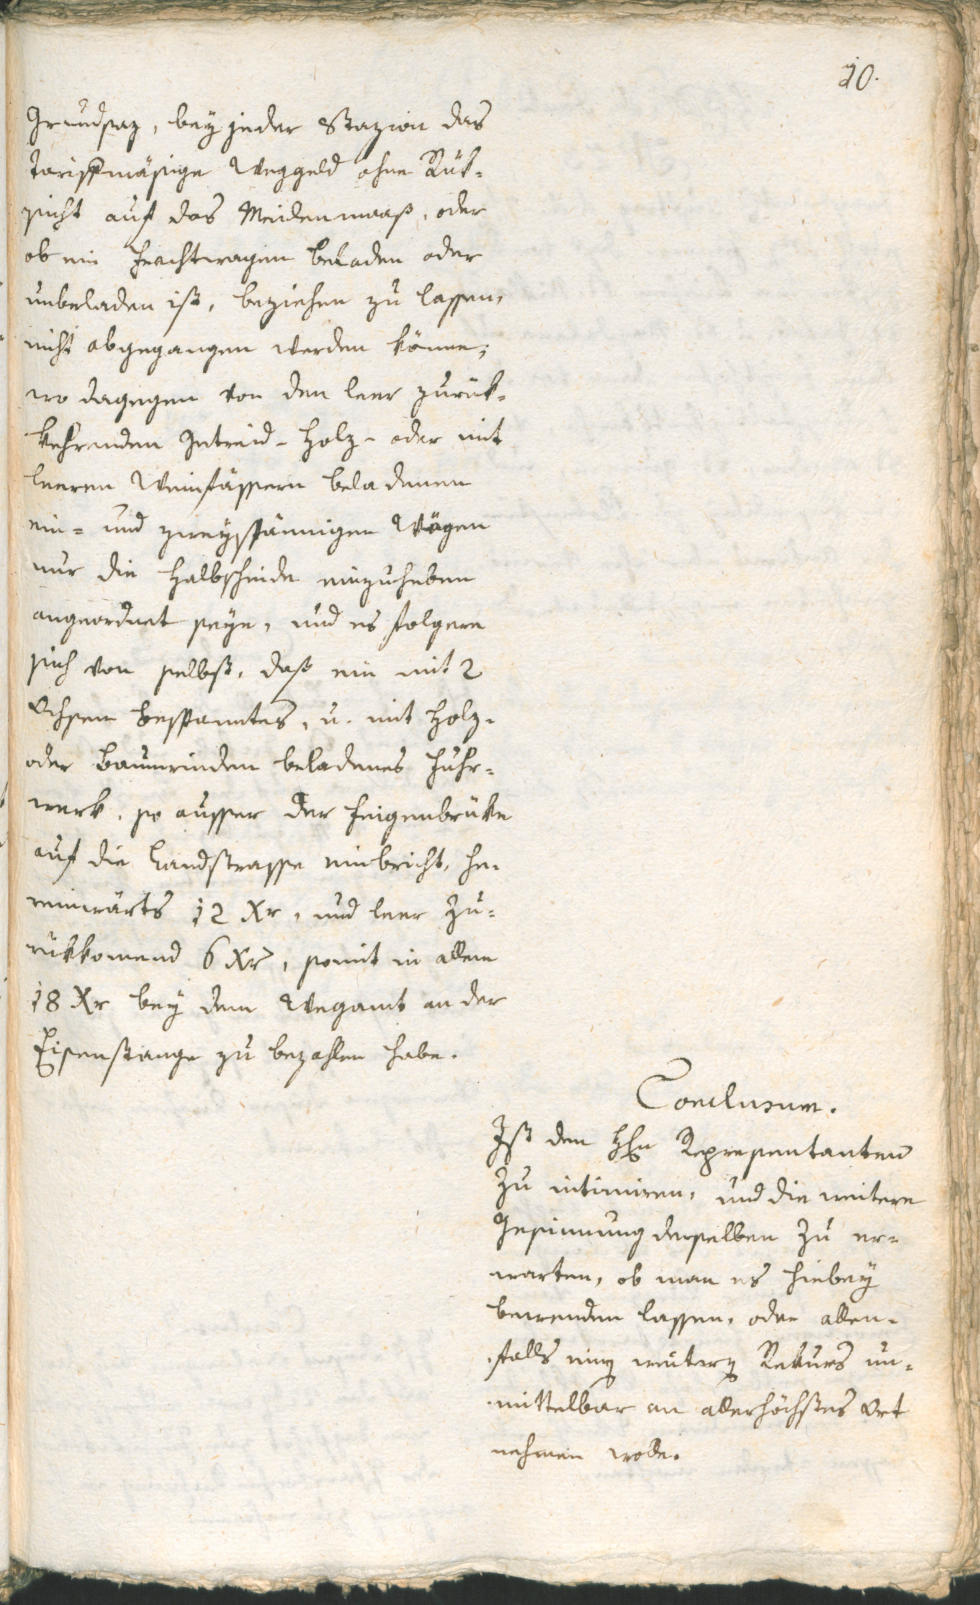 10.
Grundsaz, bey jeder Stazion das
tarifmäsige Weggeld ohne Rük-
sicht auf das Meilenmaaß, oder
ob ein Frachtwagen beladen oder
unbeladen ist, beziehen zu lassen,
nicht abgegangen werden könne;
wo dagegen von den leer zurük-
kehrenden Getreid- Holz- oder mit
leeren Weinfässern beladenen
ein- und zweyspännigen Wägen
nur die Halbscheide einzuheben
angeordnet seye, und es folgere
sich von selbst, daß ein mit 2
Ochsen bespanntes, u. mit Holz-
oder Baumrinden beladenes Fuhr-
werk, so ausser der Feigenbrüke
auf die Landstrasse einbricht, he-
reinwärts 12 Xr, und leer zu-
rükkomend 6 Xr, somit in allem
18 Xr bey dem Wegamt an der
Eisenstange zu bezahlen habe.
Conclusum.
Ist den HHn Representanten
zu intimiren, und die weitere
Gesinnung derselben zu er-
warten, ob man es hiebey
bewenden lassen, oder allen-
falls einen weitern Rekurs un-
mittelbar an allerhöchstes Ort
nehmen wolle.